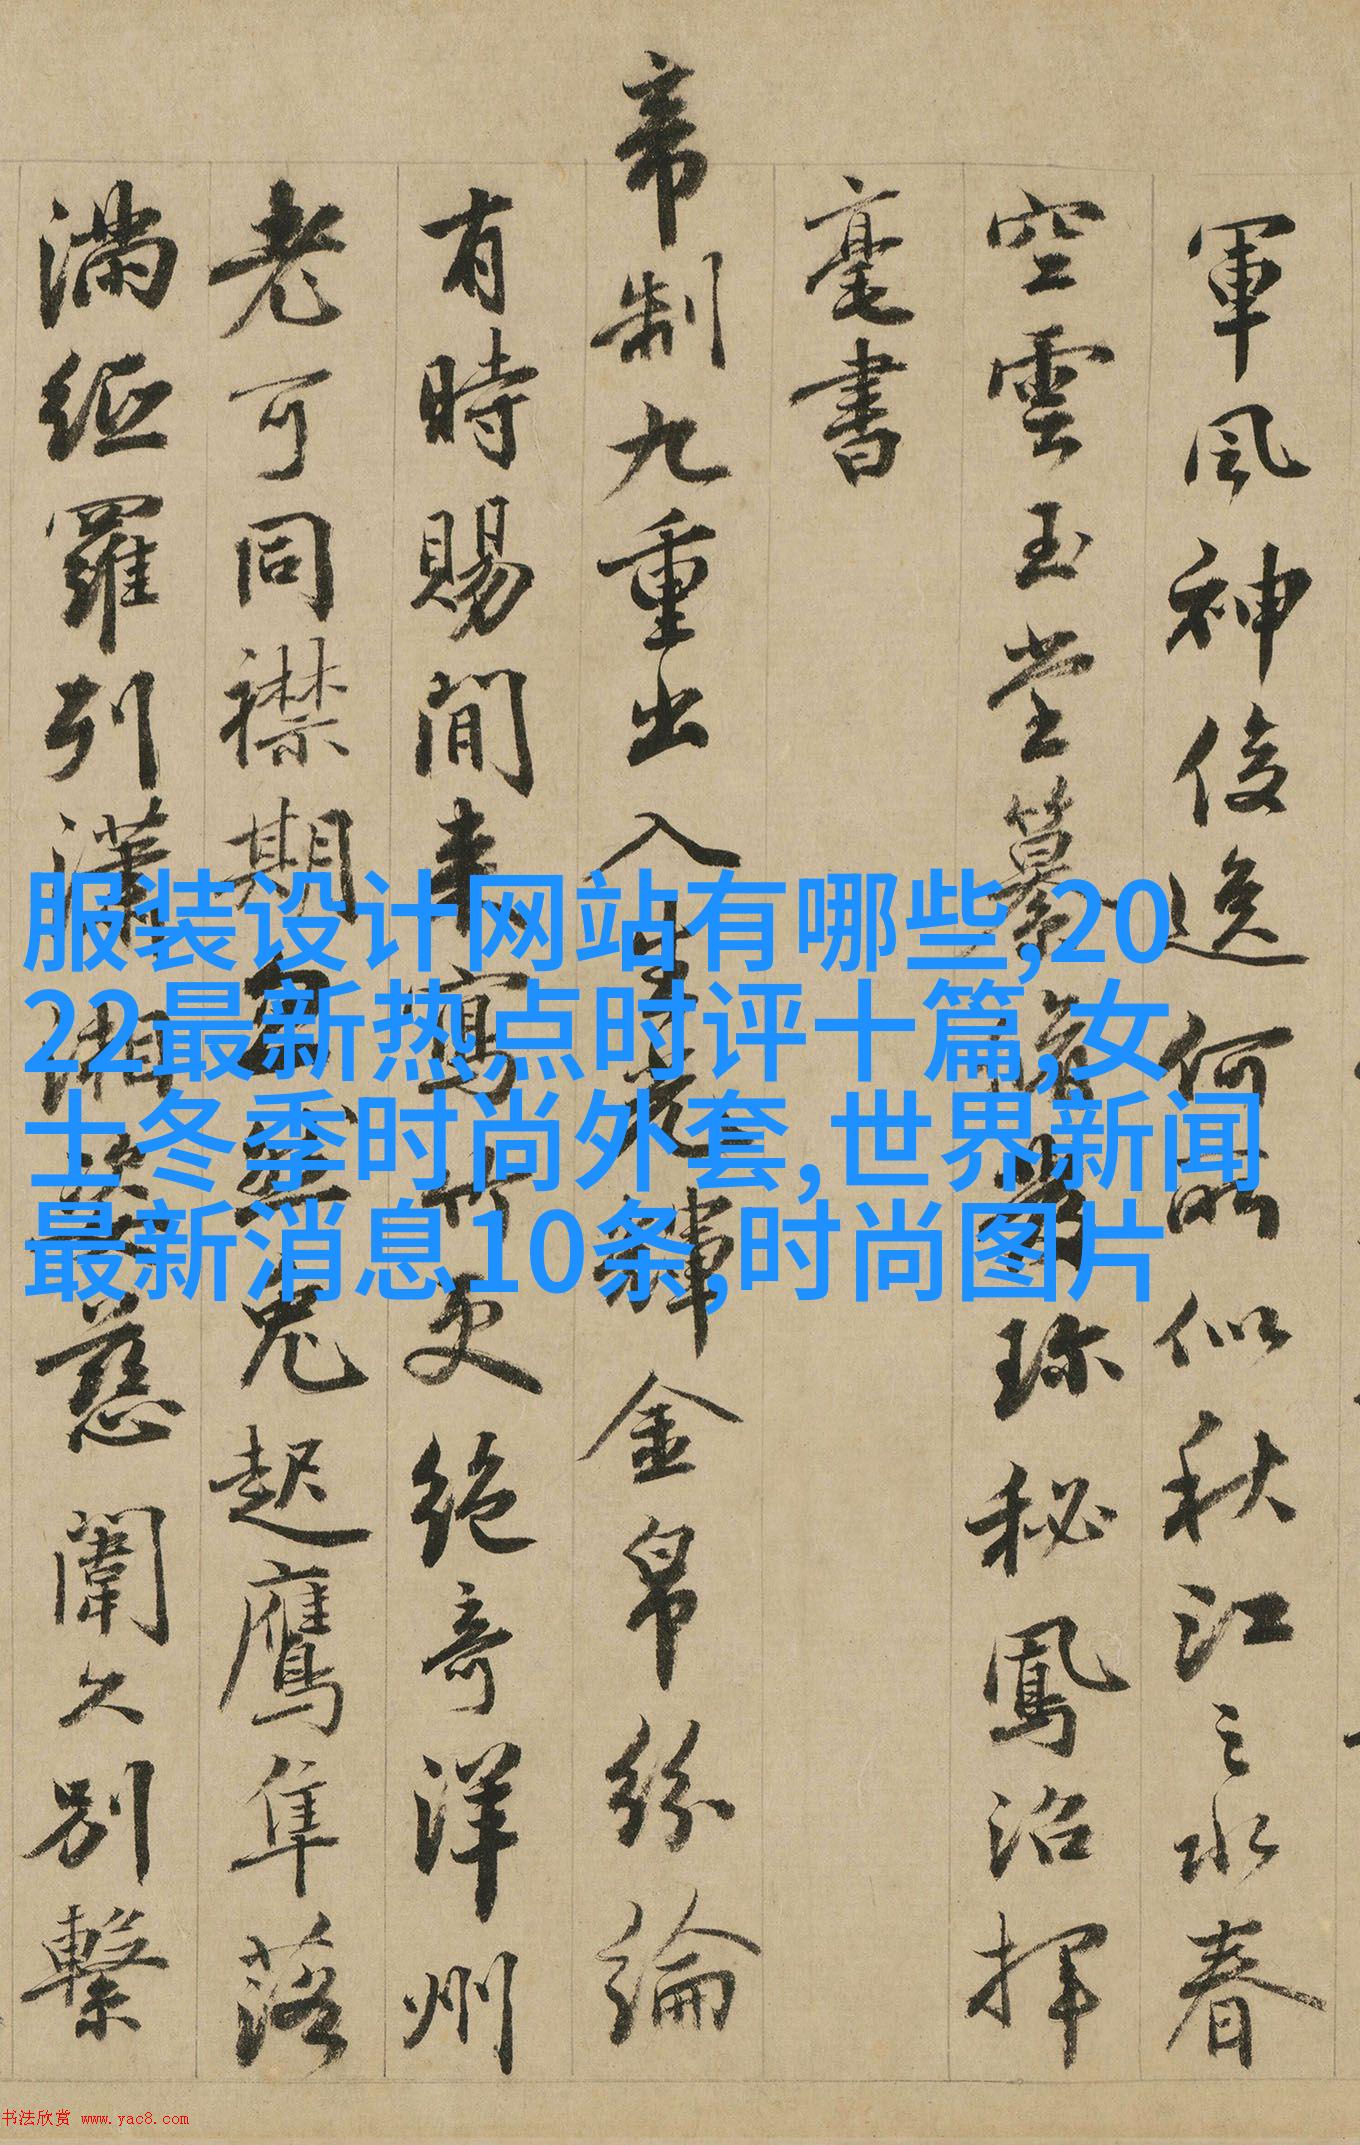 軍風神俊逸何所似秋江之水春
空雲玉堂纂珍秘鳳沼揮
毫書
帝制九重出入生光輝金帛紛綸
有時賜閒来寫竹更絶奇洋州
老可同襟期兔起鷹隼落
滿羅列瀟湘慈闈久別繋
服装设计网站有哪些,20
22最新热点时评十篇,女
士冬季时尚外套,世界新闻
最新消息10条,时尚图片
书法欣赏 www.yac8.com